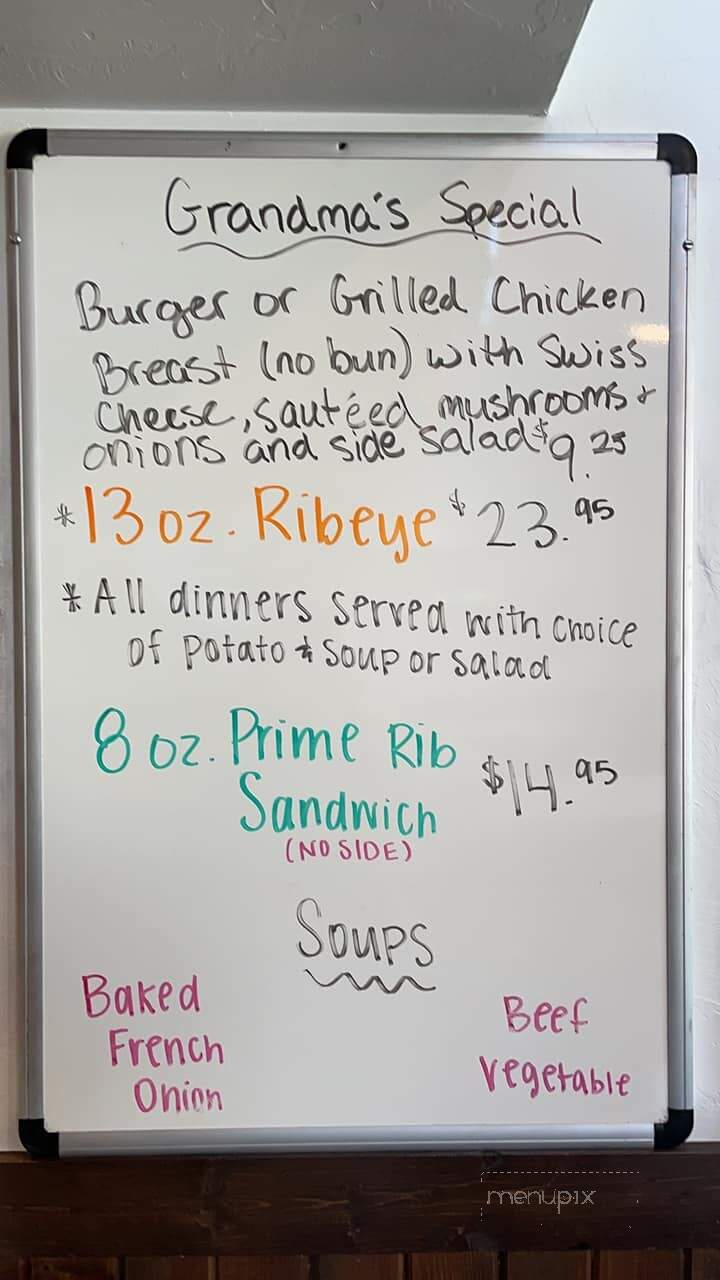 Grandma's Special
Burger or Grilled Chicken
Breast (no bun) with Swiss
Cheese, sautéed mushrooms &
onions and side salad $9.25
*13 oz. Ribeye $23.95
*All dinners served with choice
of potato & soup or salad
8 oz. Prime Rib
Sandwich $14.95
(NO SIDE)
Soups
Baked
French
Onion
Beef
Vegetable
menupix